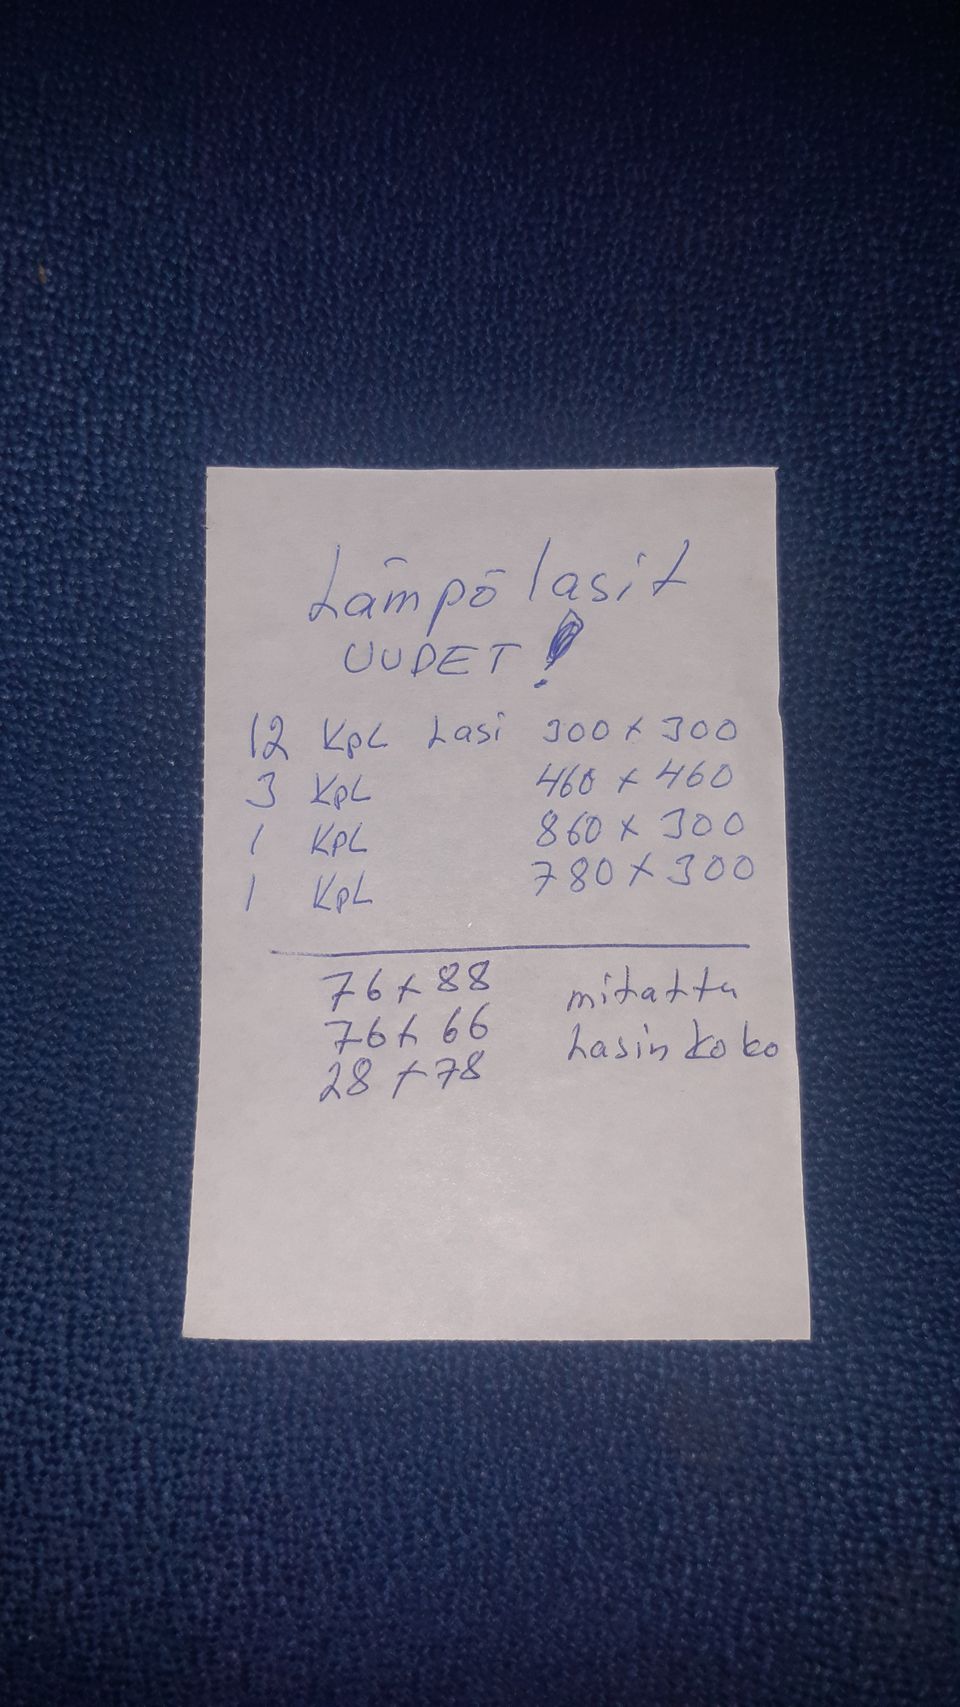 Lämpö lasit
UUDET!
12 KpL Lasi 300 x 300
3 KpL 460 x 460
1 KpL 860 x 300
1 KpL 780 x 300
76 x 88 mitattu
76 x 66 Lasin koko
28 x 78